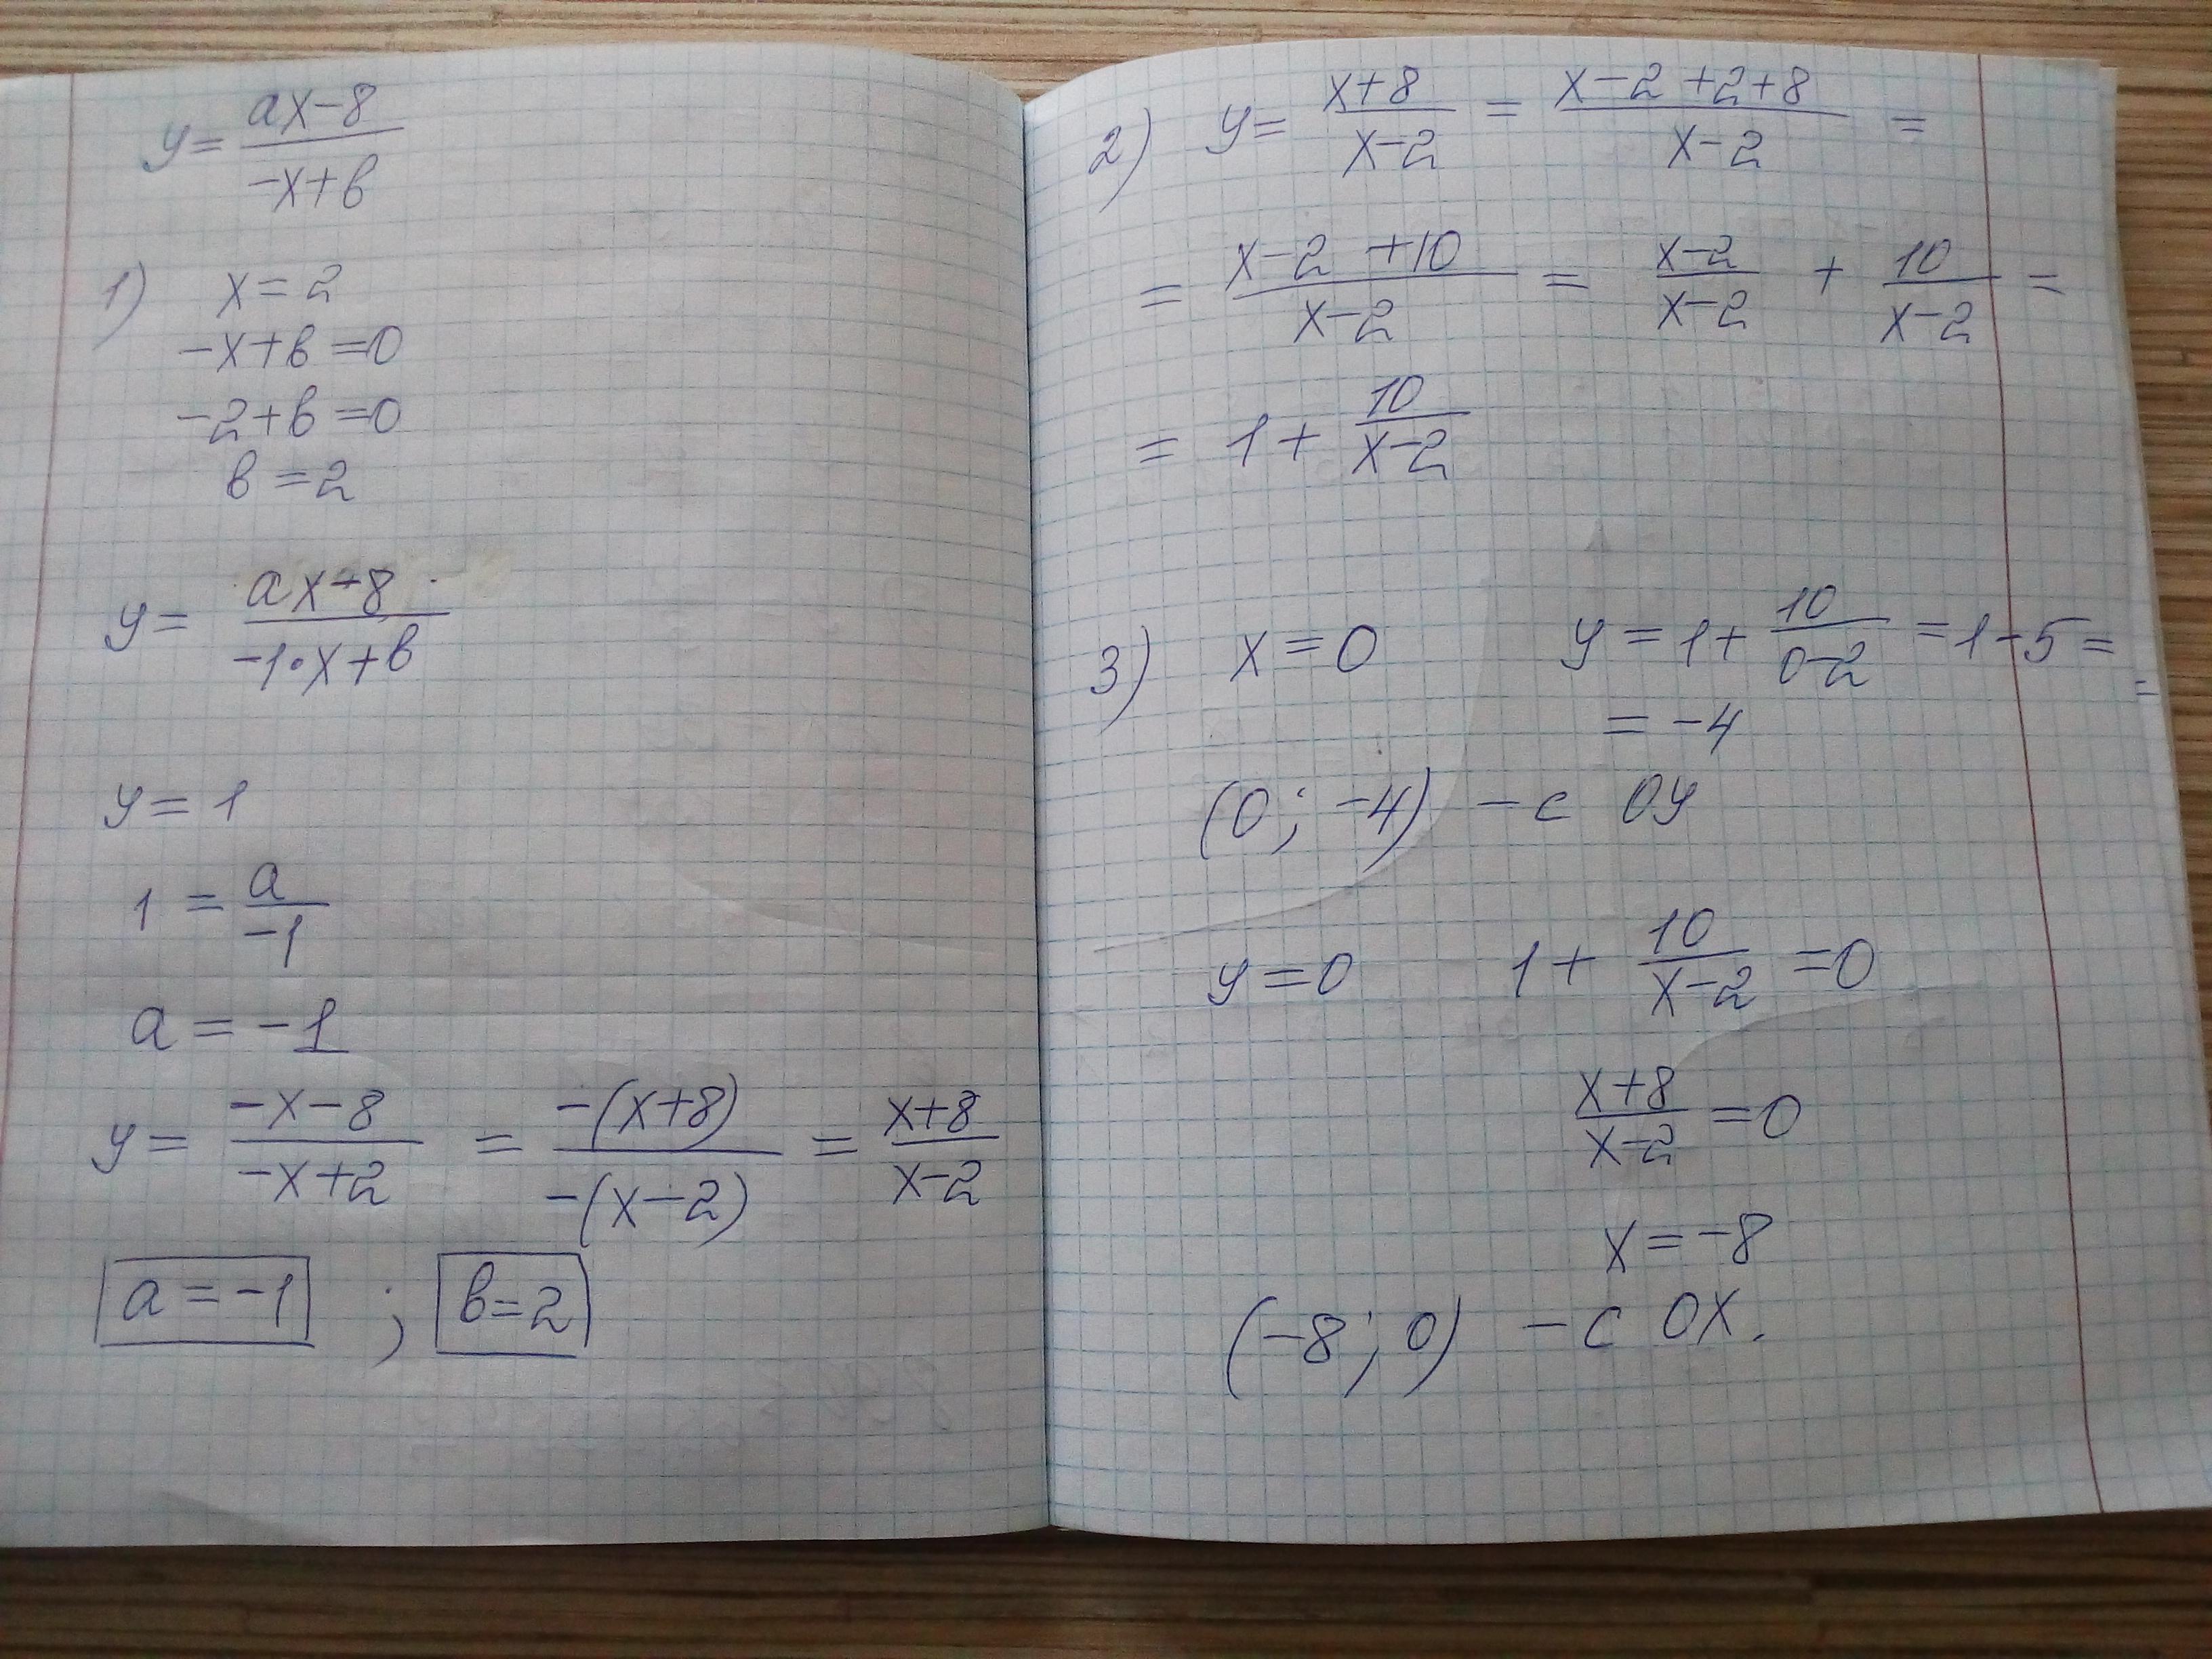 y = (ax-8)/(-x+в)
1) x = 2
-x+в =0
-2+в =0
в =2
y = (ax-8)/(-1•x+в)
y = 1
1 = a/(-1)
a = -1
y = (-x-8)/(-x+2) = (-(x+8))/(-(x-2)) = (x+8)/(x-2)
a = -1 ; в=2
2) y = (x+8)/(x-2) = (x-2+2+8)/(x-2) =
= (x-2+10)/(x-2) = (x-2)/(x-2) + 10/(x-2) =
= 1+ 10/(x-2)
3) x = 0 y = 1+ 10/(0-2) = 1-5 =
=
= -4
(0; -4) - с OY
y = 0 1+ 10/(x-2) =0
(x+8)/(x-2) =0
x = -8
(-8; 0) - с OX.